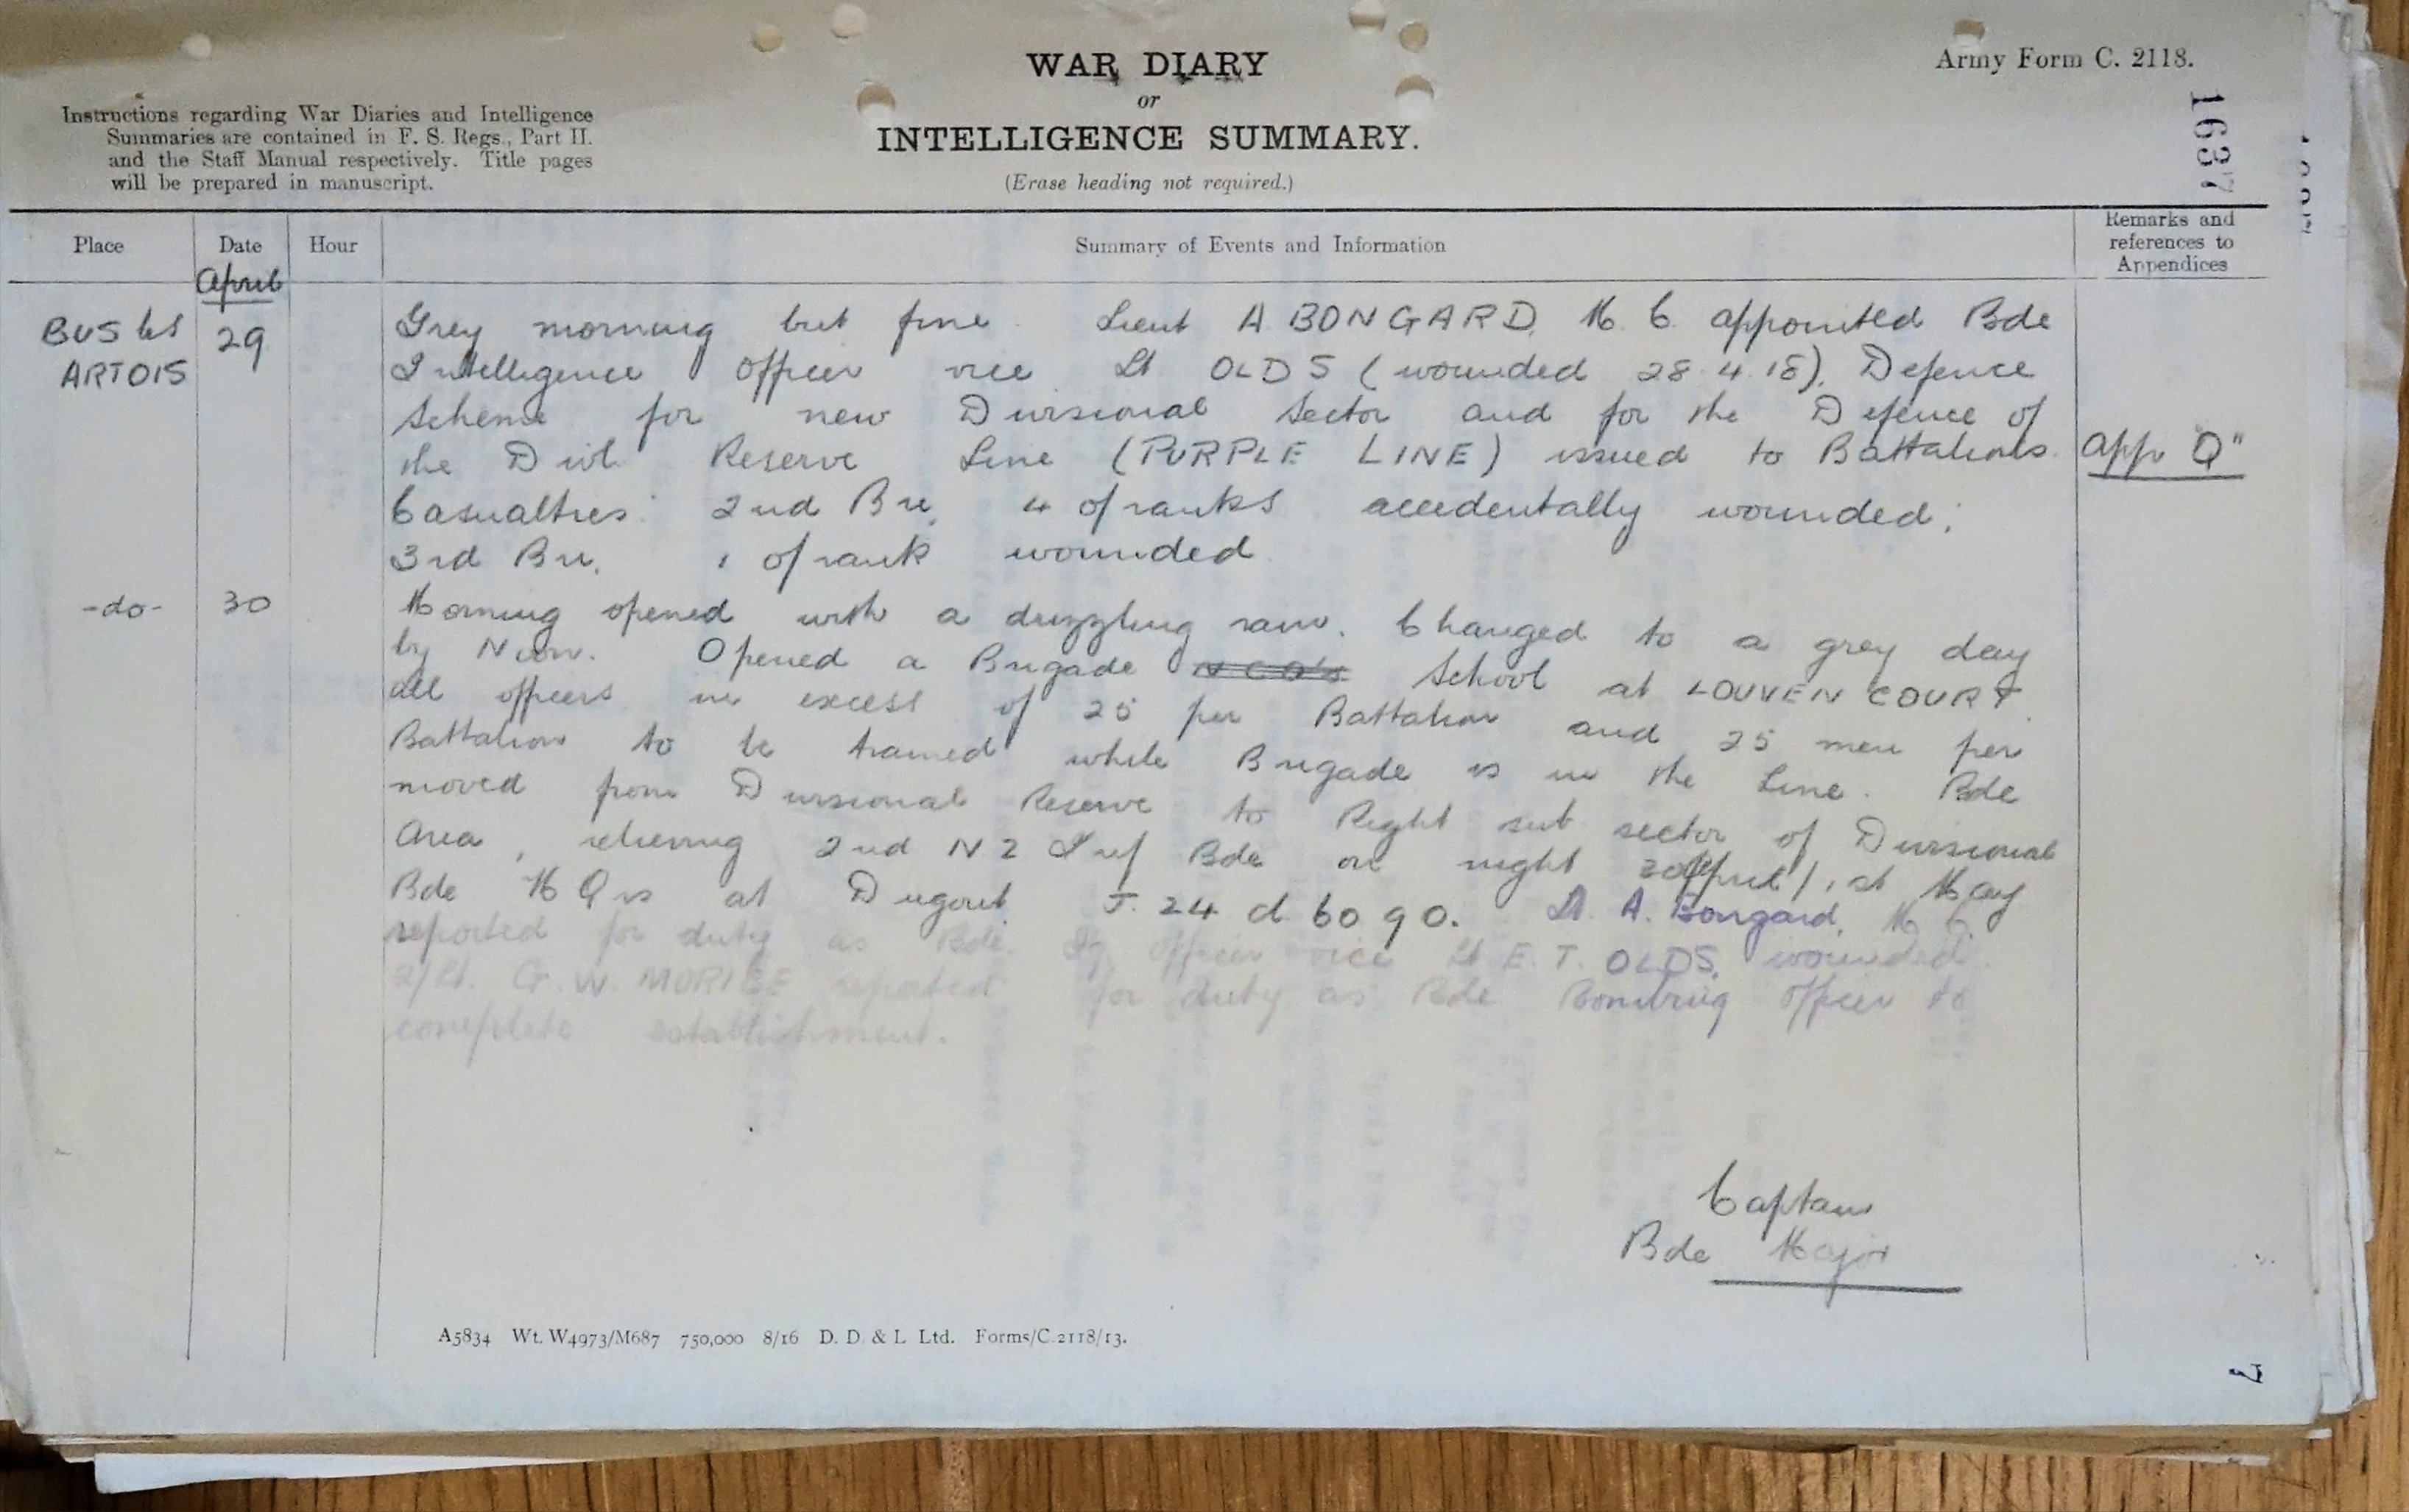 WAR DIARY
or
INTELLIGENCE SUMMARY.
(Erase heading not required.)
Army Form C. 2118.
1637
Instructions regarding War Diaries and Intelligence
Summaries are contained in F. S. Regs., Part II.
and the Staff Manual respectively. Title pages
will be prepared in manuscript.
Place Date Hour Summary of Events and Information Remarks and references to Appendices
April
BUS les ARTOIS 29 Grey morning but fine. Lieut A BONGARD. M.C. appointed Bde
Intelligence Officer vice Lt OLDS (wounded 28.4.18). Defence
Scheme for new Divisional Sector and for the Defence of
the Divl. Reserve Line (PURPLE LINE) issued to Battalions. App "Q"
Casualties: 2nd Bn. 4 o/ranks accidentally wounded;
3rd Bn. 1 o/rank wounded
-do- 30 Morning opened with a drizzling rain. Changed to a grey day
by Noon. Opened a Brigade NCO's School at LOUVENCOURT
all officers in excess of 25 per Battalion and 25 men per
Battalion to be trained while Brigade is in the Line. Bde
moved from Divisional Reserve to Right sub sector of Divisional
Area, relieving 2nd NZ Inf Bde on night 30April/1st May
Bde HQrs at Dugout J.24 d.60 90. Lt A. Bongard, M.C.
reported for duty as Bde. Ig. Officer vice Lt E. T. OLDS, wounded.
2/Lt. G.W. MORICE reported for duty as Bde Bombing Officer to
complete establishment.
Captain
Bde Major
A5834 Wt. W4973/M687 750,000 8/16 D. D. & L. Ltd. Forms/C.2118/13.
7